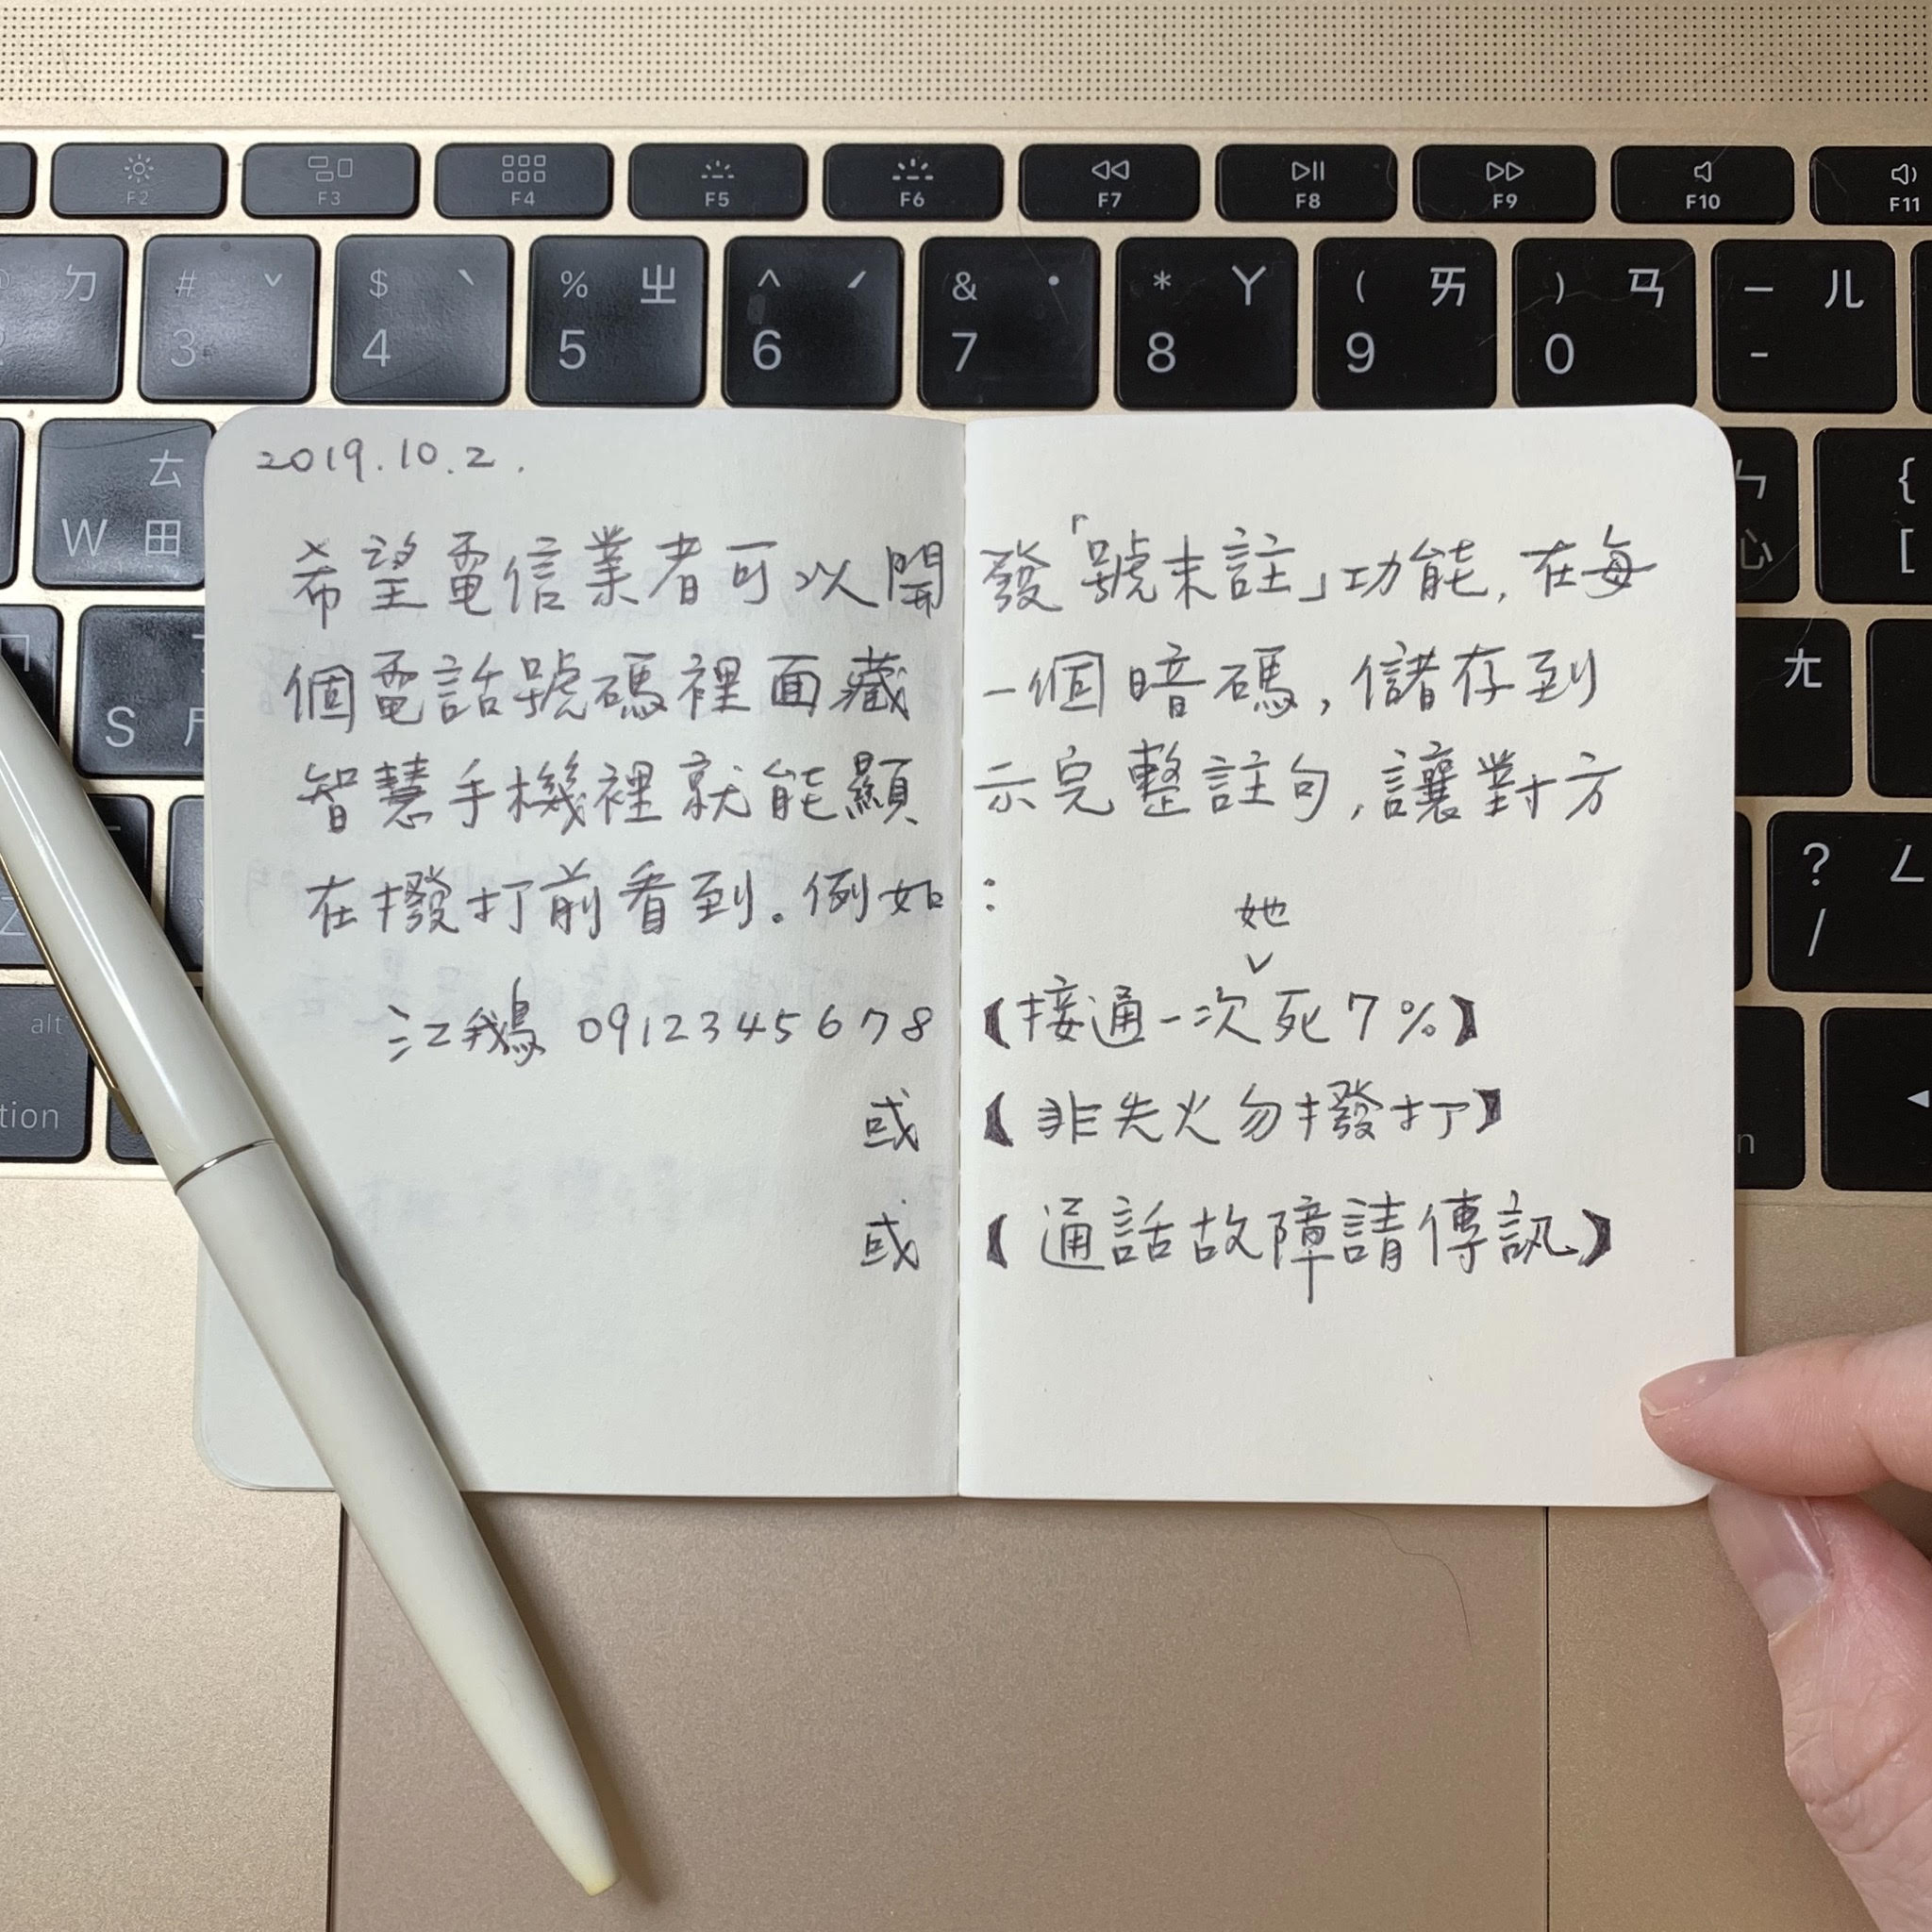 F2 F3 F4 F5 F6 F7 F8 F9 F10 F11
ㄉ # ˇ $ ˋ % ㄓ ^ ˊ & ˙ * ㄚ ( ㄞ ) ㄢ — ㄦ
3 4 5 6 7 8 9 0 -
ㄊ ㄣ {
W 田 心 [
S ㄤ
? ㄥ
/
alt
tion
2019.10.2.
希望電信業者可以開發「號末註」功能,在每
個電話號碼裡面藏一個暗碼,儲存到
智慧手機裡就能顯示完整註句,讓對方
在撥打前看到。例如:
江鵝 0912345678【接通一次她死7%】
或【非失火勿撥打】
或【通話故障請傳訊】